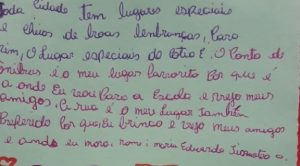 oda cidade Tem lugares especiais
e chios de boas lembranças, Para
rim, O lugar especiais do é. O Ponto do
ônibus e o meu lugar favorito Por que é
a onde Eu vou Para a Escola e vejo mais
amigos. a rua é o meu lugar também
Preferido Por que Eu brinco e vejo meus amigos
e a onde eu moro. nomi: maria Eduarda